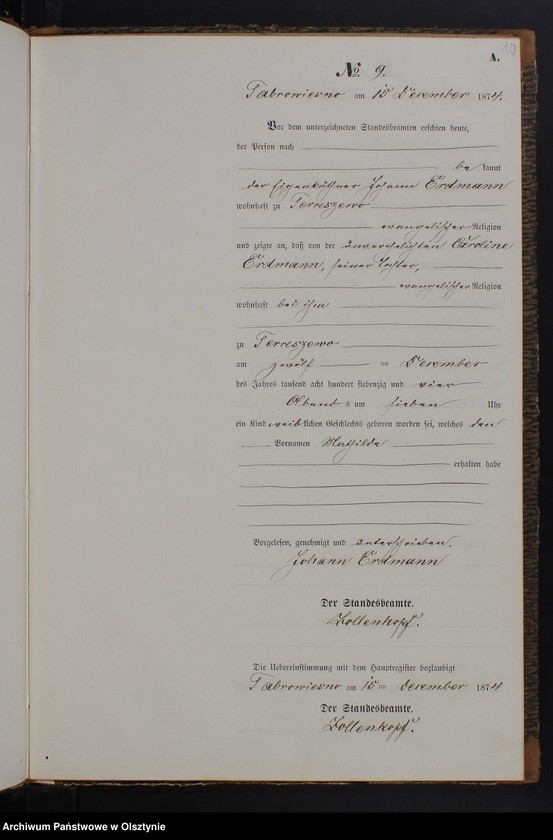 10
A.
No. 9.
Tabrowiesno am 15 December 1874.
Vor dem unterzeichneten Standesbeamten erschien heute,
der Person nach
be kannt
der Eigenkäthner Johann Erdmann
wohnhaft zu Terreszewo
evangelischer Religion
und zeigte an, daß von der unverehelichten Caroline
Erdmann, seiner Tochter,
evangelischer Religion
wohnhaft bei ihm
zu Terreszewo
am zwölf ten December
des Jahres tausend acht hundert siebenzig und vier
Abends um sieben Uhr
ein Kind weiblichen Geschlechts geboren worden sei, welches den
Vornamen Mathilde
erhalten habe
Vorgelesen, genehmigt und unterschrieben.
Johann Erdmann
Der Standesbeamte.
Boltenkopf.
Die Uebereinstimmung mit dem Hauptregister beglaubigt
Tabrowiesno am 15 ten December 1874
Der Standesbeamte.
Boltenkopf.
Archiwum Państwowe w Olsztynie